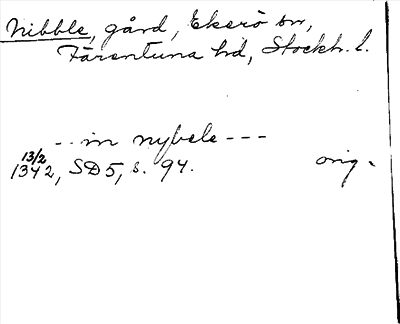 Nibble, gård, Ekerö sn,
Färentuna hd, Stockh. l.
-- in nybele ---
13/2
1342, SD5, s. 94. orig.